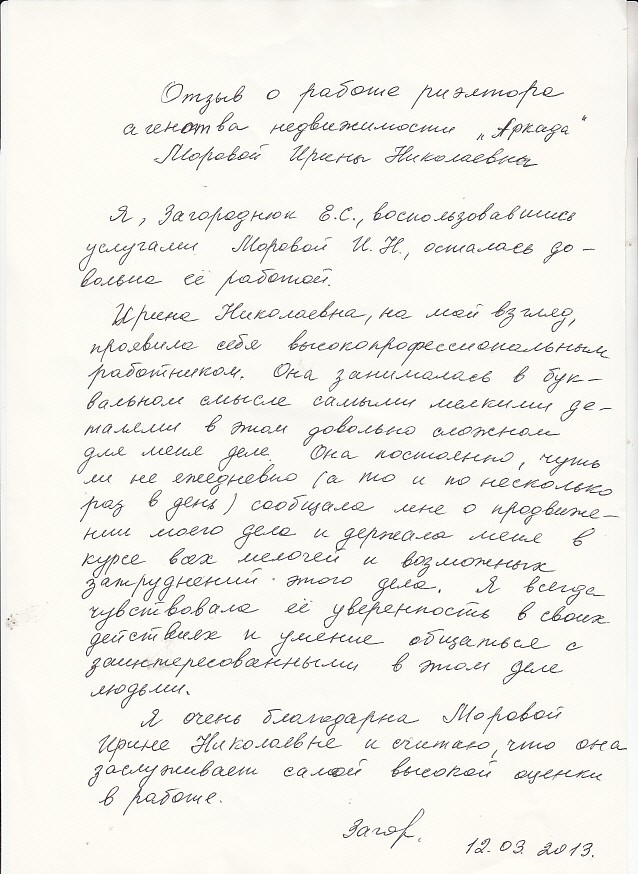 Отзыв о работе риэлтора
агенства недвижимости „Аркада"
Моровой Ирины Николаевны
Я, Загороднюк Е.С., воспользовавшись
услугами Моровой И.Н., осталась до-
вольна её работой.
Ирина Николаевна, на мой взгляд,
проявила себя высокопрофессиональным
работником. Она занималась в бук-
вальном смысле самыми мелкими де-
талями в этом довольно сложном
для меня деле. Она постоянно, чуть
ли не ежедневно (а то и по несколько
раз в день) сообщала мне о продвиже-
нии моего дела и держала меня в
курсе всех мелочей и возможных
затруднений этого дела. Я всегда
чувствовала её уверенность в своих
действиях и умение общаться с
заинтересованными в этом деле
людьми.
Я очень благодарна Моровой
Ирине Николаевне и считаю, что она
заслуживает самой высокой оценки
в работе.
Загор.
12.03.2013.